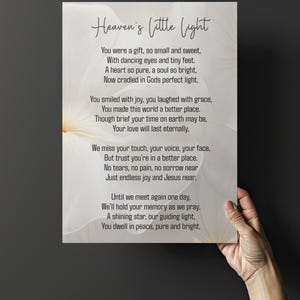 Heaven's Little Light
You were a gift, so small and sweet,
With dancing eyes and tiny feet.
A heart so pure, a soul so bright,
Now cradled in Gods perfect light.
You smiled with joy, you laughed with grace,
You made this world a better place.
Though brief your time on earth may be,
Your love will last eternally.
We miss your touch, your voice, your face,
But trust you're in a better place.
No tears, no pain, no sorrow near
Just endless joy and Jesus near.
Until we meet again one day,
We'll hold your memory as we pray,
A shining star, our guiding light,
You dwell in peace, pure and bright.